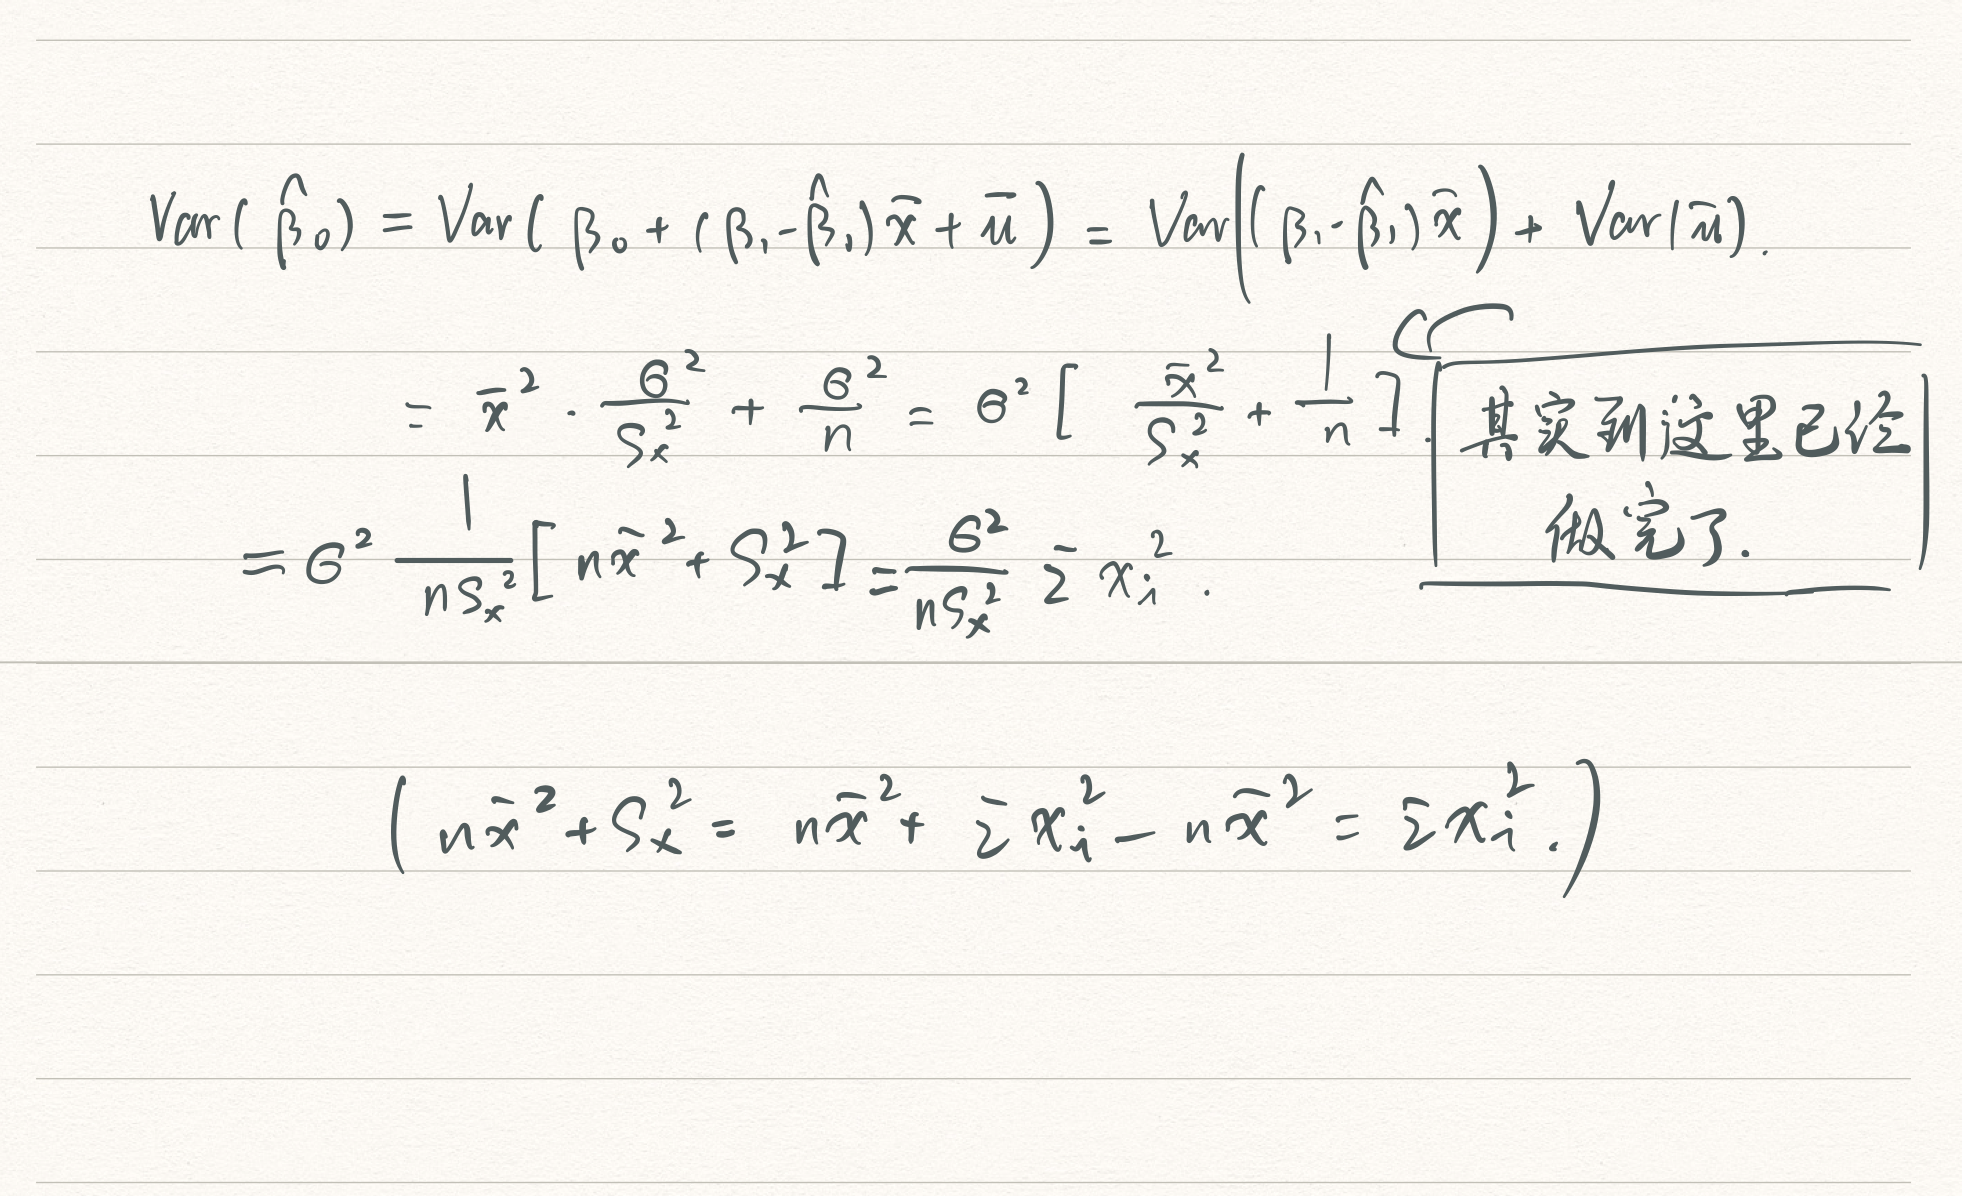 Var(β̂₀) = Var(β₀ + (β₁ - β̂₁)x̄ + ū) = Var((β₁ - β̂₁)x̄) + Var(ū).
= x̄² · σ²/Sₓ² + σ²/n = σ² [x̄²/Sₓ² + 1/n].
其实到这里已经
做完了.
= σ² 1/(nSₓ²) [nx̄² + Sₓ²] = σ²/(nSₓ²) Σxᵢ².
(nx̄² + Sₓ² = nx̄² + Σxᵢ² - nx̄² = Σxᵢ².)